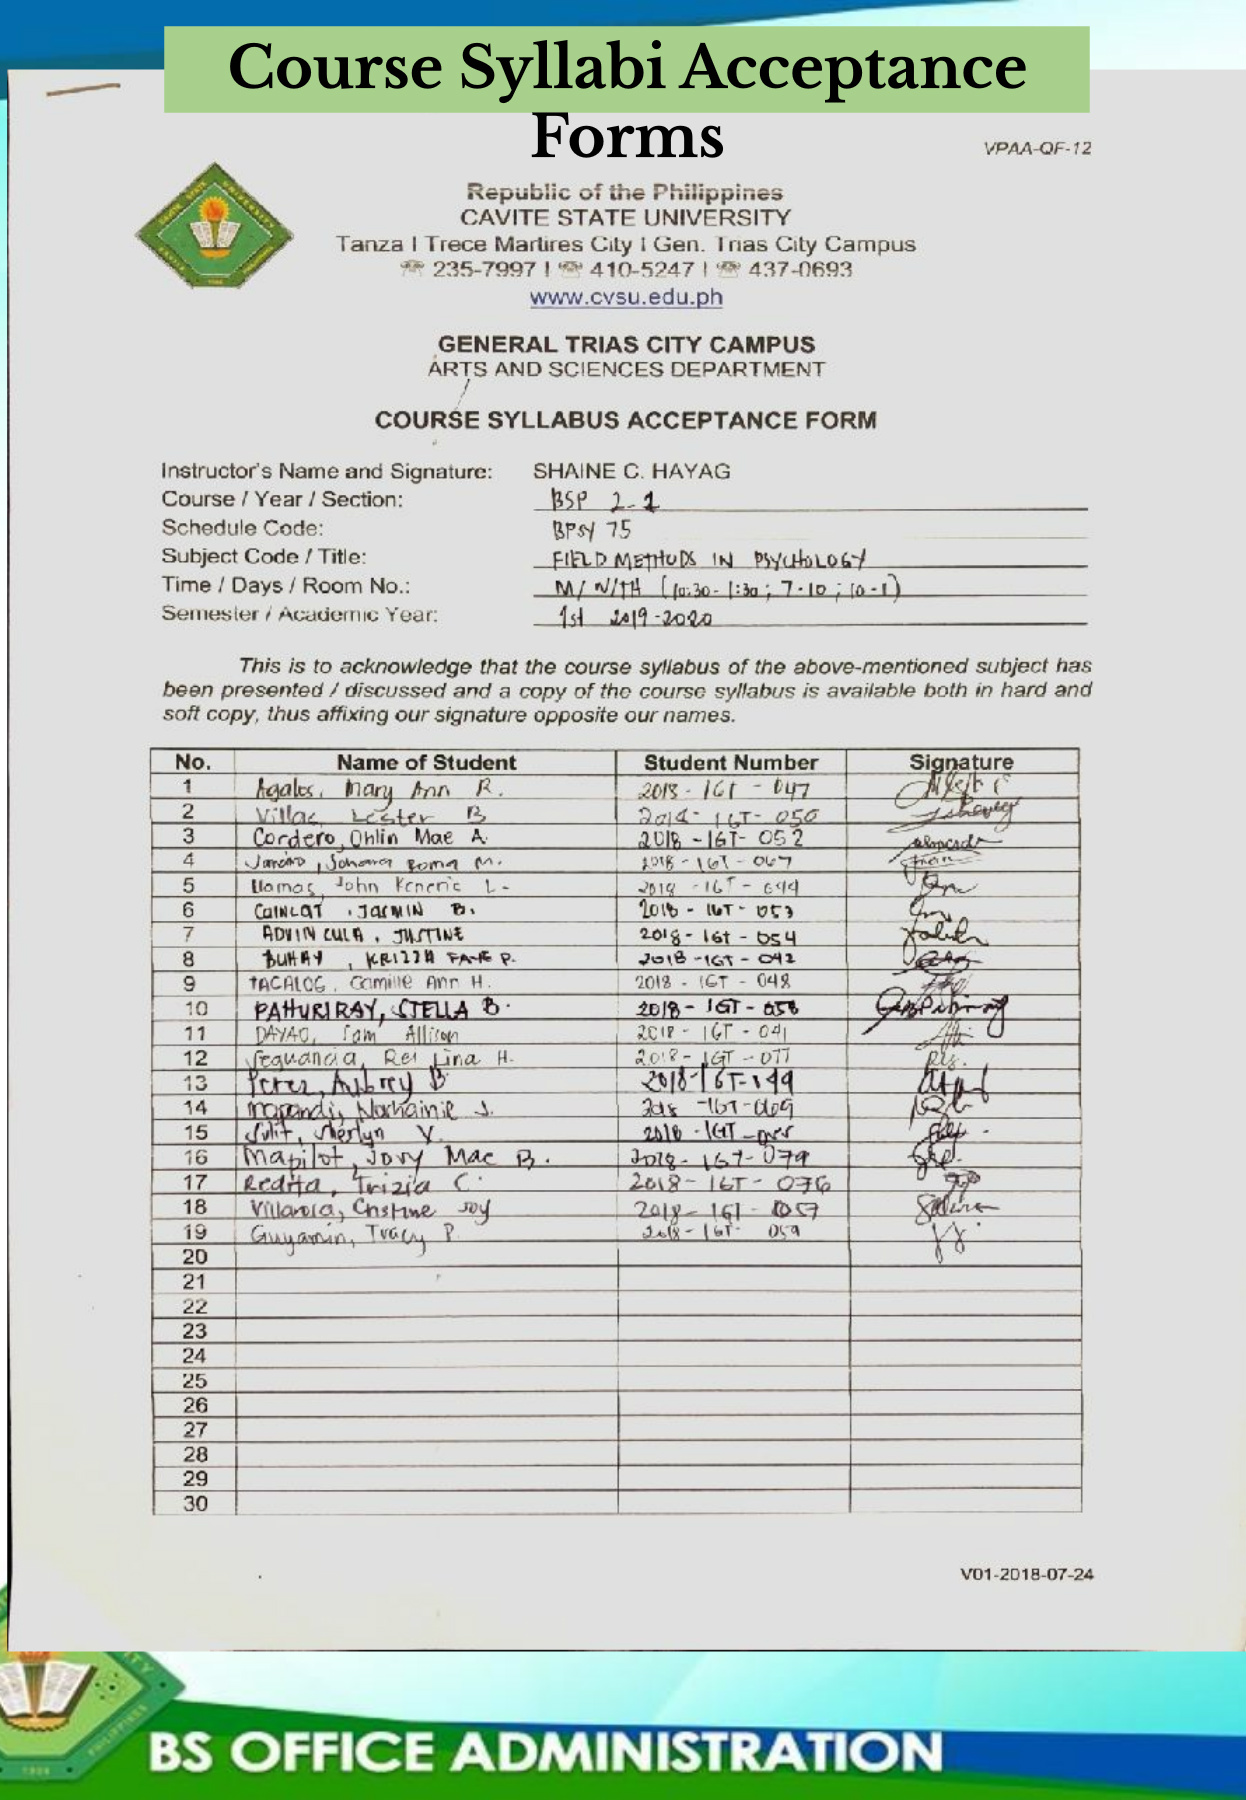 Course Syllabi Acceptance
Forms
VPAA-QF-12
Republic of the Philippines
CAVITE STATE UNIVERSITY
Tanza I Trece Martires City I Gen. Trias City Campus
☏ 235-7997 I ☏ 410-5247 I ☏ 437-0693
www.cvsu.edu.ph
GENERAL TRIAS CITY CAMPUS
ARTS AND SCIENCES DEPARTMENT
COURSE SYLLABUS ACCEPTANCE FORM
Instructor's Name and Signature: SHAINE C. HAYAG
Course / Year / Section: BSP 2-1
Schedule Code: BPSY 75
Subject Code / Title: FIELD METHODS IN PSYCHOLOGY
Time / Days / Room No.: M/W/TH (10:30-1:30; 7-10; 10-1)
Semester / Academic Year: 1st 2019-2020
This is to acknowledge that the course syllabus of the above-mentioned subject has
been presented / discussed and a copy of the course syllabus is available both in hard and
soft copy, thus affixing our signature opposite our names.
No. Name of Student Student Number Signature
1 Agales, Mary Ann R. 2018-IGT-047
2 Villac, Lester B
3 Cordero, Ohlin Mae A. 2018-IGT-052
4 M. 2018-IGT-067
5 Llamas, John Keneric L. 2018-IGT-
6 JASMIN B. 2018-IGT-053
7 ADVINCULA, JUSTINE 2018-IGT-054
8 BUHAY, KRIZZA FAYE P. 2018-IGT-042
9 TACALOG, Camille Ann H. 2018-IGT-048
10 PAHURIRAY, STELLA B. 2018-IGT-058
11 DAYAO, Sam Allison 2018-IGT-041
12 Seguancia, Rei Lina H. 2018-IGT-077
13 Perez, Aubrey B 2018-IGT-149
14 Mapandi, Norhainie J. 2018-IGT-069
15 Sulit, Sherlyn V. 2018-IGT
16 Mapilot, Jovy Mae B. 2018-IGT-079
17 Redita, Trizia C. 2018-IGT-076
18 Villarosa, Cristine Joy 2018-IGT-057
19 Guyamin, Tracy P. 2018-IGT-059
20
21
22
23
24
25
26
27
28
29
30
V01-2018-07-24
BS OFFICE ADMINISTRATION